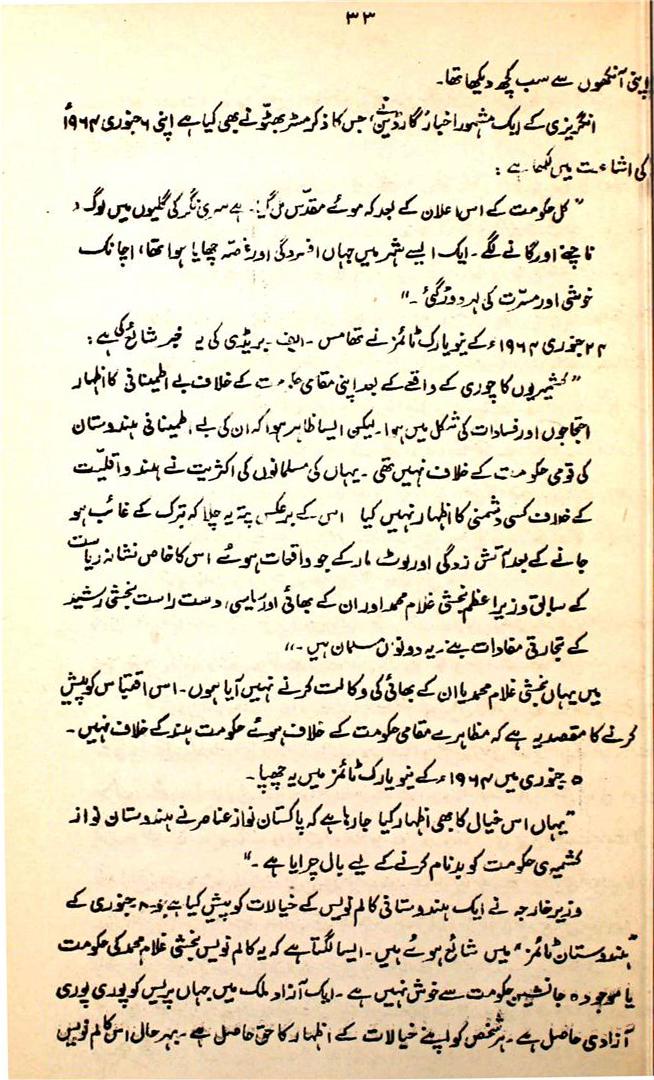 ۳۳
اپنی آنکھوں سے سب کچھ دیکھا تھا۔
انگریزی کے ایک مشہور اخبار گارڈین نے، جس کا ذکر مسٹر بھٹو نے بھی کیا ہے اپنی ۶ جنوری ۱۹۶۴ء
کی اشاعت میں لکھا ہے:
"کل حکومت کے اس اعلان کے بعد کہ موئے مقدس مل گیا ہے سری نگر کی گلیوں میں لوگ
ناچنے اور گانے لگے۔ ایک ایسے شہر میں جہاں افسردگی اور غصہ چھایا ہوا تھا، اچانک
خوشی اور مسرت کی لہر دوڑ گئی۔"
۲۴ جنوری ۱۹۶۴ء کے نیویارک ٹائمز نے تھامس۔ ایف۔ بریڈی کی یہ خبر شائع کی ہے:
"کشمیریوں کا چوری کے واقعے کے بعد اپنی مقامی حکومت کے خلاف بے اطمینانی کا اظہار
احتجاجوں اور فسادات کی شکل میں ہوا۔ لیکن ایسا ظاہر ہوا کہ ان کی بے اطمینانی ہندوستان
کی قومی حکومت کے خلاف نہیں تھی۔ یہاں کی مسلمانوں کی اکثریت نے ہندو اقلیت
کے خلاف کسی دشمنی کا اظہار نہیں کیا اس کے برعکس پتہ یہ چلا کہ تبرک کے غائب ہو
جانے کے بعد آتش زدگی اور لوٹ مار کے جو واقعات ہوئے اس کا خاص نشانہ ریاست
کے سابق وزیر اعظم بخشی غلام محمد اور ان کے بھائی اور سیاسی دست راست بخشی رشید
کے تجارتی مفادات بنے۔ یہ دونوں مسلمان ہیں۔"
میں یہاں بخشی غلام محمد یا ان کے بھائی کی وکالت کرنے نہیں آیا ہوں۔ اس اقتباس کو پیش
کرنے کا مقصد یہ ہے کہ مظاہرے مقامی حکومت کے خلاف ہوئے حکومت ہند کے خلاف نہیں۔
۵ جنوری میں ۱۹۶۴ء کے نیویارک ٹائمز میں یہ چھپا۔
"یہاں اس خیال کا بھی اظہار کیا جا رہا ہے کہ پاکستان نواز عناصر نے ہندوستان نواز
کشمیری حکومت کو بدنام کرنے کے لیے یہ بال چرایا ہے۔"
وزیر خارجہ نے ایک ہندوستانی کالم نویس کے خیالات کو پیش کیا ہے جو ۸ جنوری کے
"ہندوستان ٹائمز" میں شائع ہوئے ہیں۔ ایسا لگتا ہے کہ یہ کالم نویس بخشی غلام محمد کی حکومت
یا موجودہ جانشین حکومت سے خوش نہیں ہے۔ ایک آزاد ملک میں جہاں پریس کو پوری پوری
آزادی حاصل ہے۔ ہر شخص کو اپنے خیالات کے اظہار کا حق حاصل ہے۔ بہر حال اس کالم نویس